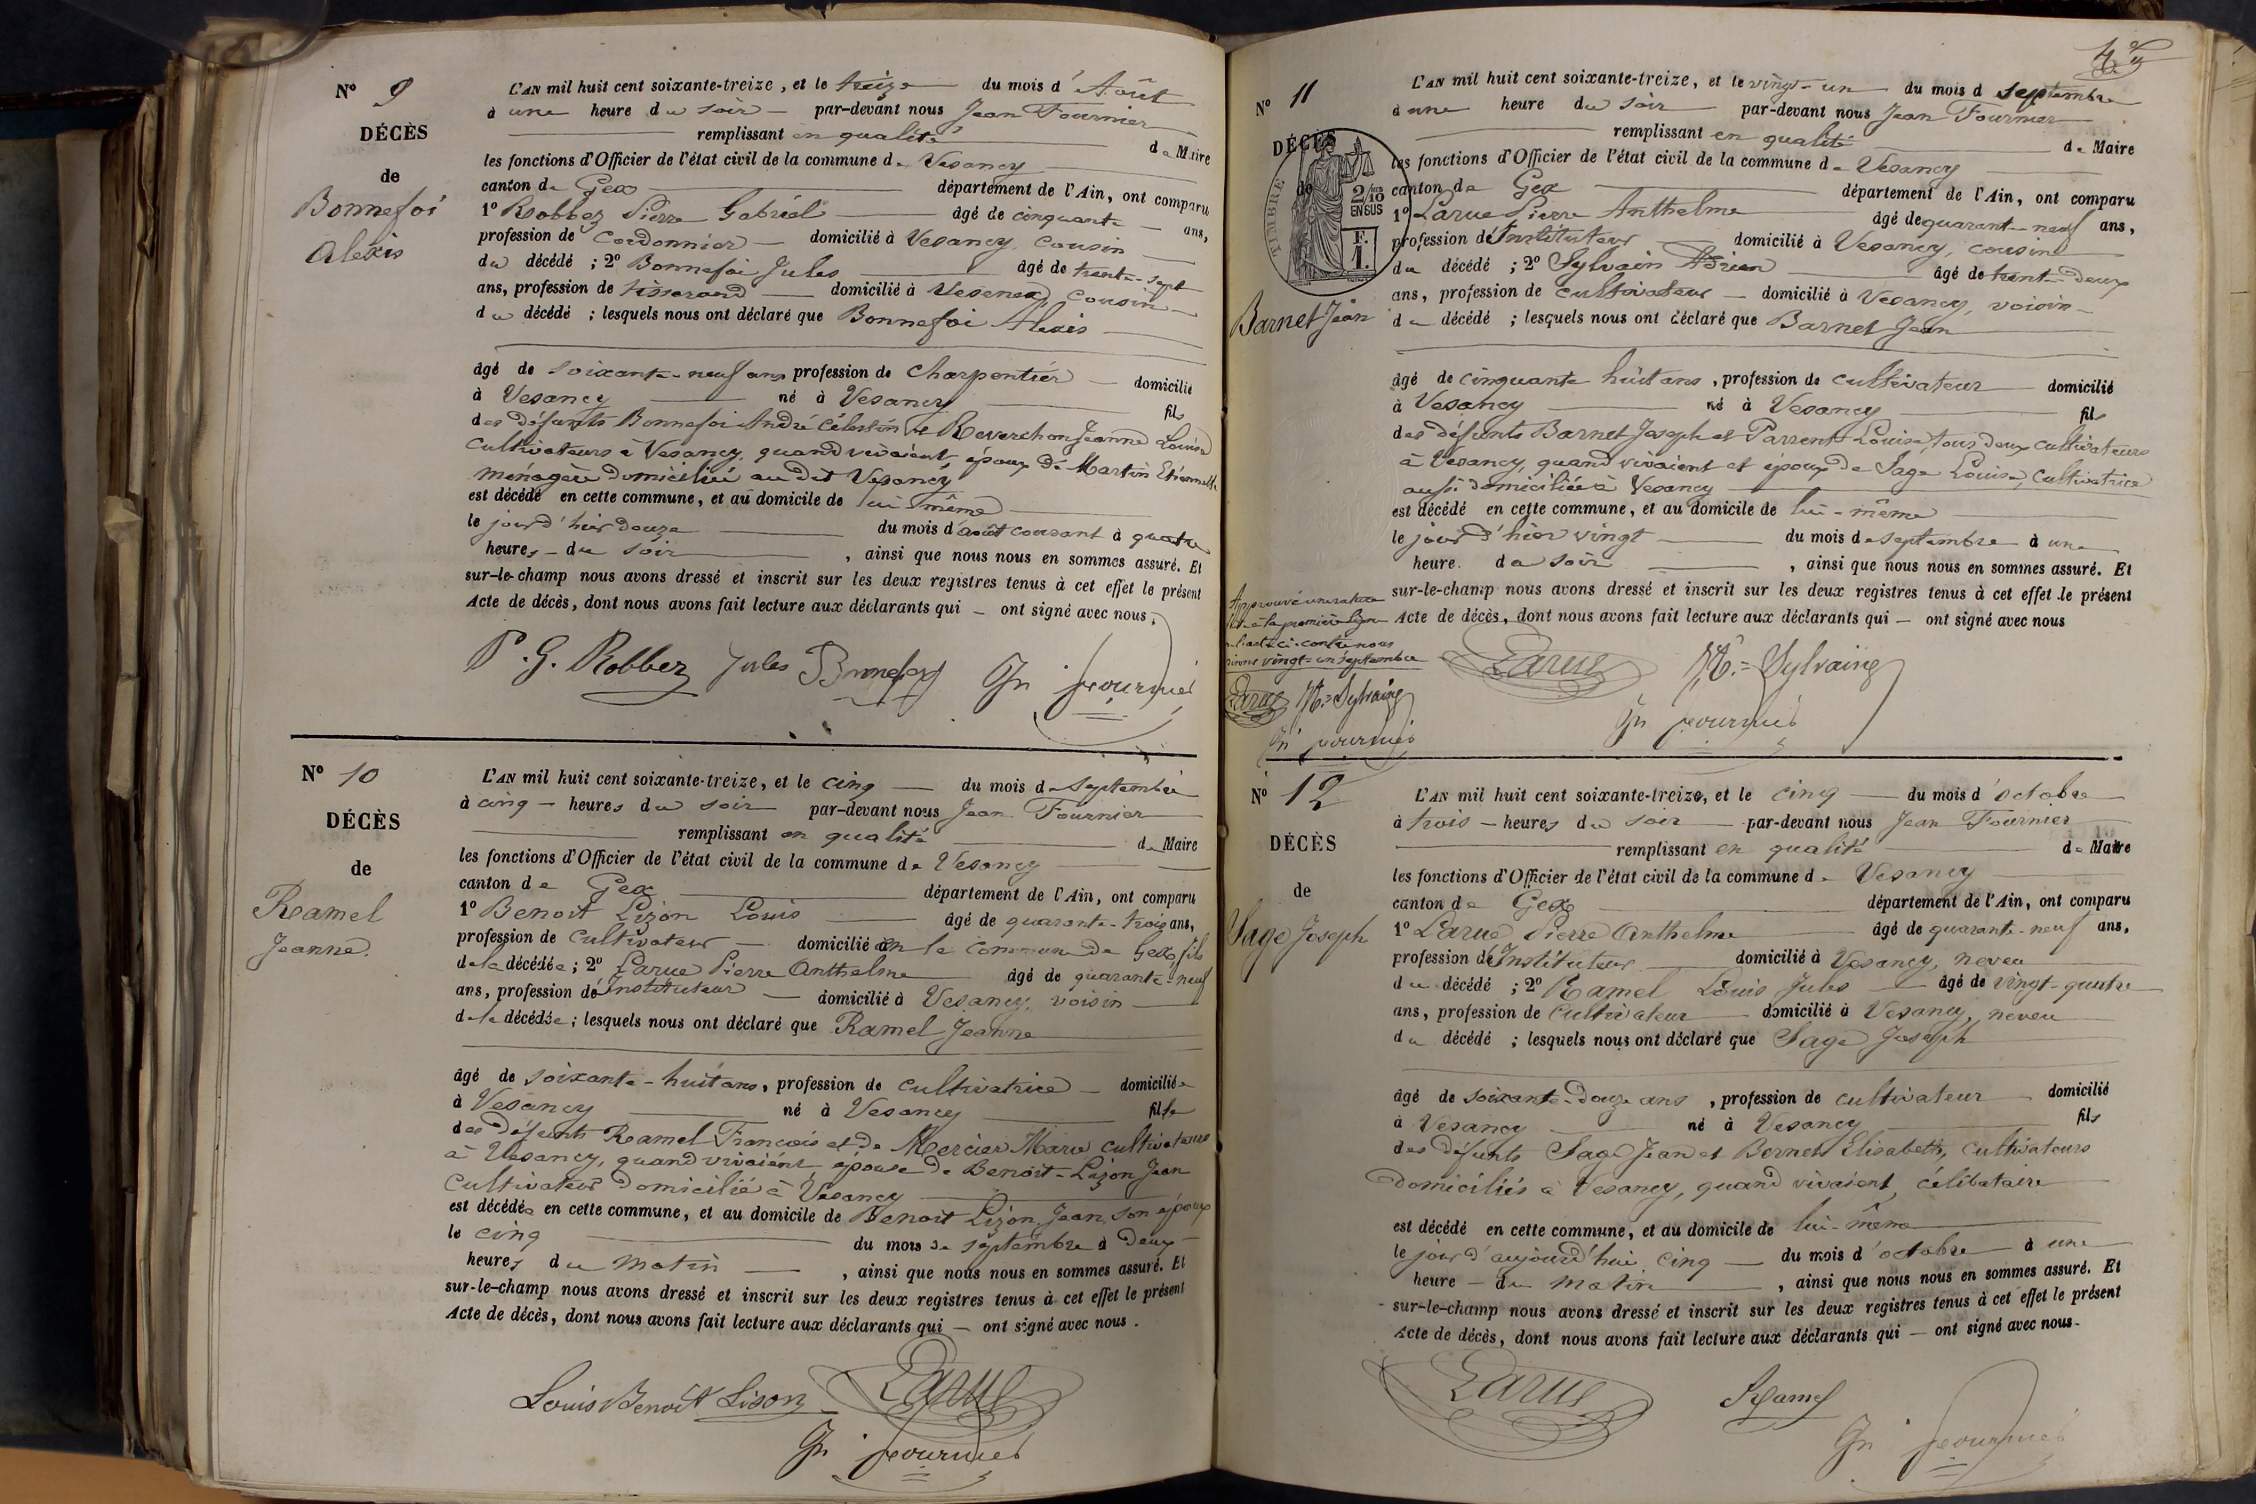 N° 9
DÉCÈS
de
Bonnefoi
Alexis
L'AN mil huit cent soixante-treize, et le treize du mois d'Août
à une heure du soir par-devant nous Jean Fournier
remplissant en qualité de Maire
les fonctions d'Officier de l'état civil de la commune de Vesancy
canton de Gex département de l'Ain, ont comparu
1° Robbez Pierre Gabriel âgé de cinquante ans,
profession de Cordonnier domicilié à Vesancy, cousin
du décédé ; 2° Bonnefoi Jules âgé de trente-sept
ans, profession de tisserand domicilié à Vesenex, cousin
du décédé ; lesquels nous ont déclaré que Bonnefoi Alexis
âgé de soixante-neuf ans profession de Charpentier domicilié
à Vesancy né à Vesancy fils
des défunts Bonnefoi André Célestin et Reverchon Jeanne Louise
cultivateurs à Vesancy, quand vivaient, époux de Martin Etiennette
ménagère domiciliée au dit Vesancy
est décédé en cette commune, et au domicile de lui même
le jour d'hier douze du mois d'août courant à quatre
heures du soir, ainsi que nous nous en sommes assuré. Et
sur-le-champ nous avons dressé et inscrit sur les deux registres tenus à cet effet le présent
Acte de décès, dont nous avons fait lecture aux déclarants qui — ont signé avec nous.
P. G. Robbez Jules Bonnefoy Jn fournier
N° 10
DÉCÈS
de
Ramel
Jeanne.
L'AN mil huit cent soixante-treize, et le cinq du mois de Septembre
à cinq heures du soir par-devant nous Jean Fournier
remplissant en qualité de Maire
les fonctions d'Officier de l'état civil de la commune de Vesancy
canton de Gex département de l'Ain, ont comparu
1° Benoit Lizon Louis âgé de quarante-trois ans,
profession de cultivateur domicilié en la commune de Gex, fils
de la décédée ; 2° Larue Pierre Anthelme âgé de quarante-neuf
ans, profession d'Instituteur domicilié à Vesancy, voisin
de la décédée ; lesquels nous ont déclaré que Ramel Jeanne
âgé de soixante-huit ans, profession de cultivatrice domiciliée
à Vesancy né à Vesancy fille
des défunts Ramel François et de Mercier Marie cultivateurs
à Vesancy, quand vivaient, épouse de Benoit-Lizon Jean
cultivateur domicilié à Vesancy
est décédée en cette commune, et au domicile de Benoit Lizon Jean, son époux
le cinq du mois de septembre à deux
heures du matin, ainsi que nous nous en sommes assuré. Et
sur-le-champ nous avons dressé et inscrit sur les deux registres tenus à cet effet le présent
Acte de décès, dont nous avons fait lecture aux déclarants qui — ont signé avec nous.
Louis Benoît Lison Larue
Jn fournier
N° 11
DÉCÈS
de
TIMBRE
2/10
EN SUS
F.
1.
Barnet Jean
L'AN mil huit cent soixante-treize, et le vingt-un du mois d septembre
à une heure du soir par-devant nous Jean Fournier
remplissant en qualité de Maire
les fonctions d'Officier de l'état civil de la commune de Vesancy
canton de Gex département de l'Ain, ont comparu
1° Larue Pierre Anthelme âgé de quarante-neuf ans,
profession d'Instituteur domicilié à Vesancy, cousin
du décédé ; 2° Sylvain Adrien âgé de trente-deux
ans, profession de cultivateur domicilié à Vesancy, voisin
du décédé ; lesquels nous ont déclaré que Barnet Jean
âgé de cinquante huit ans, profession de cultivateur domicilié
à Vesancy né à Vesancy fils
des défunts Barnet Joseph et Parrent Louise, tous deux cultivateurs
à Vesancy, quand vivaient et époux de Sage Louise, cultivatrice
aussi domiciliée à Vesancy
est décédé en cette commune, et au domicile de lui-même
le jour d'hier vingt du mois de septembre à une
heure du soir, ainsi que nous nous en sommes assuré. Et
sur-le-champ nous avons dressé et inscrit sur les deux registres tenus à cet effet le présent
Acte de décès, dont nous avons fait lecture aux déclarants qui — ont signé avec nous
Larue A. Sylvain
Jn fournier
Approuvé une rature
à la première ligne
ci-contre nous
vingt-un septembre
Larue A. Sylvain
Jn fournier
N° 12
DÉCÈS
de
Sage Joseph
L'AN mil huit cent soixante-treize, et le cinq du mois d'octobre
à trois heures du soir par-devant nous Jean Fournier
remplissant en qualité de Maire
les fonctions d'Officier de l'état civil de la commune de Vesancy
canton de Gex département de l'Ain, ont comparu
1° Larue Pierre Anthelme âgé de quarante-neuf ans,
profession d'Instituteur domicilié à Vesancy, neveu
du décédé ; 2° Ramel Louis Jules âgé de vingt-quatre
ans, profession de cultivateur domicilié à Vesancy, neveu
du décédé ; lesquels nous ont déclaré que Sage Joseph
âgé de soixante-douze ans, profession de cultivateur domicilié
à Vesancy né à Vesancy fils
des défunts Sage Jean et Bernet Elisabeth, cultivateurs
domiciliés à Vesancy, quand vivaient, célibataire
est décédé en cette commune, et au domicile de lui-même
le jour d'aujourd'hui cinq du mois d'octobre à une
heure du matin, ainsi que nous nous en sommes assuré. Et
sur-le-champ nous avons dressé et inscrit sur les deux registres tenus à cet effet le présent
Acte de décès, dont nous avons fait lecture aux déclarants qui — ont signé avec nous.
Larue Ramel
Jn fournier